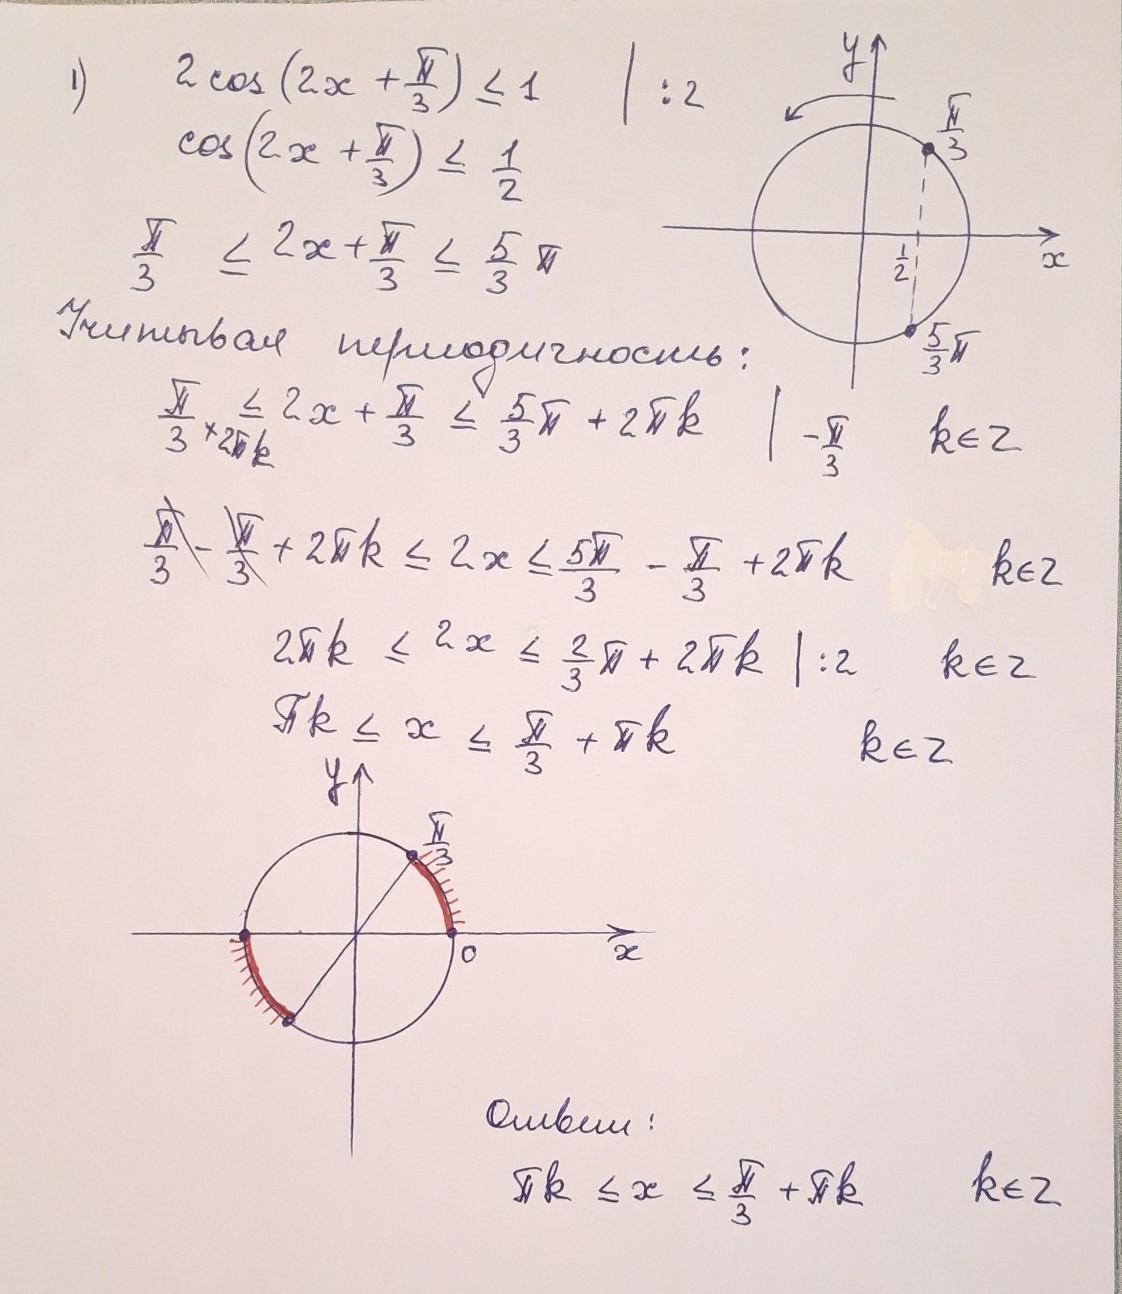 1) 2 cos (2x + π/3) ≤ 1 | : 2
cos (2x + π/3) ≤ 1/2
π/3 ≤ 2x + π/3 ≤ 5/3 π
y
π/3
1/2
x
5/3 π
Учитывая периодичность:
π/3 + 2πk ≤ 2x + π/3 ≤ 5/3 π + 2πk | - π/3 k ∈ z
π/3 - π/3 + 2πk ≤ 2x ≤ 5π/3 - π/3 + 2πk k ∈ z
2πk ≤ 2x ≤ 2/3 π + 2πk | : 2 k ∈ z
πk ≤ x ≤ π/3 + πk k ∈ z
y
π/3
0
x
Ответ:
πk ≤ x ≤ π/3 + πk k ∈ z